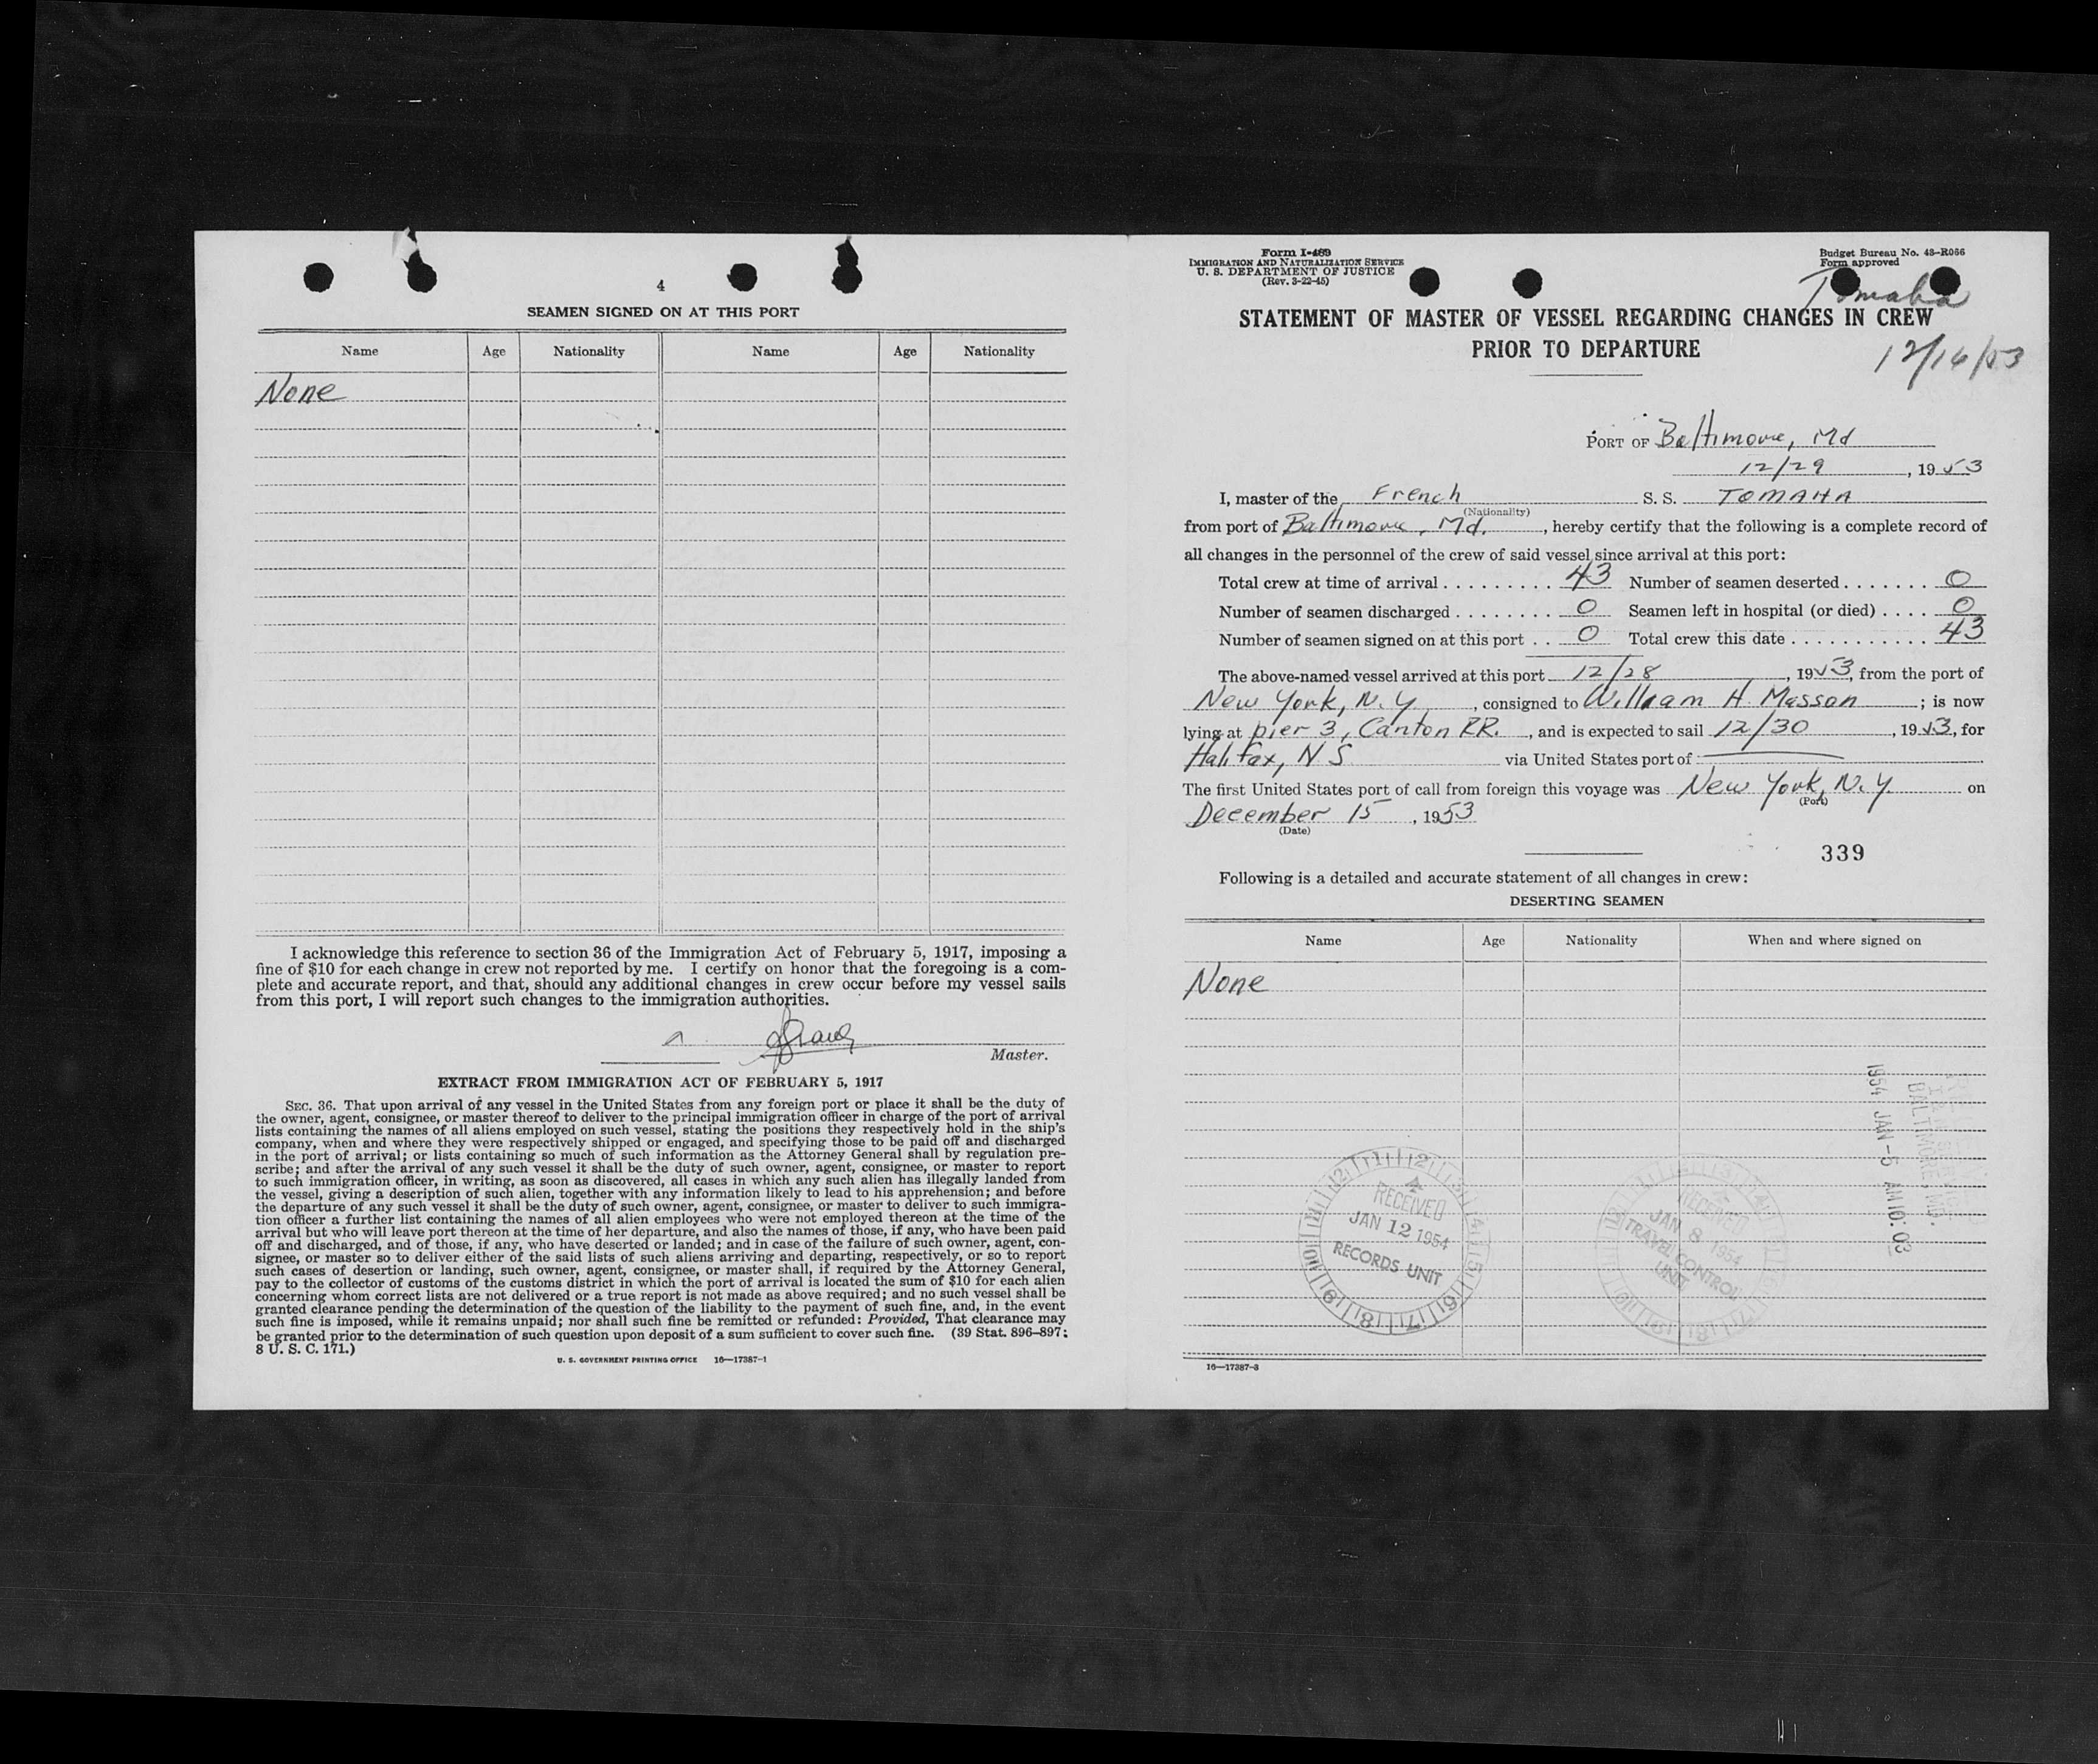 4
SEAMEN SIGNED ON AT THIS PORT
Name Age Nationality Name Age Nationality
None
I acknowledge this reference to section 36 of the Immigration Act of February 5, 1917, imposing a
fine of $10 for each change in crew not reported by me. I certify on honor that the foregoing is a com-
plete and accurate report, and that, should any additional changes in crew occur before my vessel sails
from this port, I will report such changes to the immigration authorities.
Master.
EXTRACT FROM IMMIGRATION ACT OF FEBRUARY 5, 1917
SEC. 36. That upon arrival of any vessel in the United States from any foreign port or place it shall be the duty of
the owner, agent, consignee, or master thereof to deliver to the principal immigration officer in charge of the port of arrival
lists containing the names of all aliens employed on such vessel, stating the positions they respectively hold in the ship's
company, when and where they were respectively shipped or engaged, and specifying those to be paid off and discharged
in the port of arrival; or lists containing so much of such information as the Attorney General shall by regulation pre-
scribe; and after the arrival of any such vessel it shall be the duty of such owner, agent, consignee, or master to report
to such immigration officer, in writing, as soon as discovered, all cases in which any such alien has illegally landed from
the vessel, giving a description of such alien, together with any information likely to lead to his apprehension; and before
the departure of any such vessel it shall be the duty of such owner, agent, consignee, or master to deliver to such immigra-
tion officer a further list containing the names of all alien employees who were not employed thereon at the time of the
arrival but who will leave port thereon at the time of her departure, and also the names of those, if any, who have been paid
off and discharged, and of those, if any, who have deserted or landed; and in case of the failure of such owner, agent, con-
signee, or master so to deliver either of the said lists of such aliens arriving and departing, respectively, or so to report
such cases of desertion or landing, such owner, agent, consignee, or master shall, if required by the Attorney General,
pay to the collector of customs of the customs district in which the port of arrival is located the sum of $10 for each alien
concerning whom correct lists are not delivered or a true report is not made as above required; and no such vessel shall be
granted clearance pending the determination of the question of the liability to the payment of such fine, and, in the event
such fine is imposed, while it remains unpaid; nor shall such fine be remitted or refunded: Provided, That clearance may
be granted prior to the determination of such question upon deposit of a sum sufficient to cover such fine. (39 Stat. 896–897;
8 U. S. C. 171.)
U. S. GOVERNMENT PRINTING OFFICE 16—17387-1
Form I-489
IMMIGRATION AND NATURALIZATION SERVICE
U. S. DEPARTMENT OF JUSTICE
(Rev. 3-22-45)
Budget Bureau No. 43–R066
Form approved
Tomaha
STATEMENT OF MASTER OF VESSEL REGARDING CHANGES IN CREW
PRIOR TO DEPARTURE
12/16/53
PORT OF Baltimore, Md
12/29, 1953
I, master of the French S. S. TOMAHA
(Nationality)
from port of Baltimore, Md., hereby certify that the following is a complete record of
all changes in the personnel of the crew of said vessel since arrival at this port:
Total crew at time of arrival . . . . . . . . . 43 Number of seamen deserted . . . . . . . 0
Number of seamen discharged . . . . . . . . 0 Seamen left in hospital (or died) . . . . 0
Number of seamen signed on at this port . . 0 Total crew this date . . . . . . . . . . . . 43
The above-named vessel arrived at this port 12/28, 1953, from the port of
New York, N. Y., consigned to William H. Masson; is now
lying at pier 3, Canton RR., and is expected to sail 12/30, 1953, for
Halifax, N S via United States port of
The first United States port of call from foreign this voyage was New York, N. Y. on
(Port)
December 15, 1953
(Date)
339
Following is a detailed and accurate statement of all changes in crew:
DESERTING SEAMEN
Name Age Nationality When and where signed on
None
1954 JAN -5 AM 10:03
BALTIMORE, MD.
RECEIVED
JAN 12 1954
RECORDS UNIT
RECEIVED
JAN 8 1954
TRAVEL CONTROL
UNIT
16—17387-3